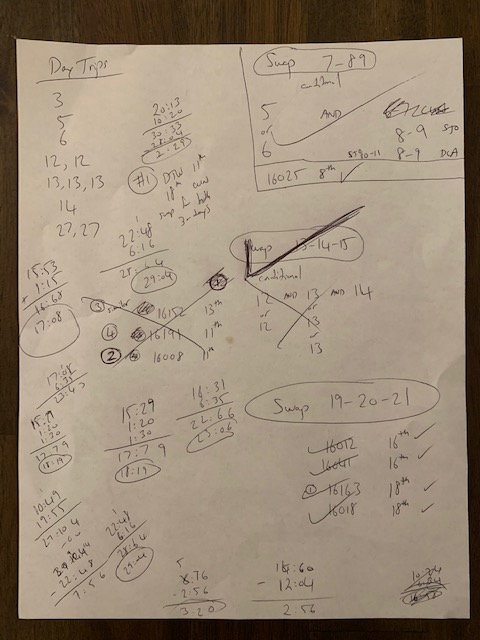 Day Trips
3
5
6
12, 12
13, 13, 13
14
27, 27
20:13
10:20
30:33
2:29
#1
DTW 11th
18th CUN
swap for both
3-days
Swap 7-89
conditional
5 AND
or
6
8-9 STO
8-9 DCA
16025 8th
22:48
6:16
28:64
29:04
Swap 13-14-15
conditional
12 AND 13 AND 14
or or
12 13
or
13
15:53
+ 1:15
16:68
17:08
3 16152 13th
4 16191 11th
2 16008 11th
17:08
6:35
23:43
15:29
1:20
1:30
17:79
18:19
15:29
1:20
1:30
17:79
18:19
16:31
6:35
22:66
23:06
Swap 19-20-21
16012 16th
16041 16th
1 16163 18th
16018 18th
10:49
- 22:48
7:56
22:48
6:16
28:64
29:04
5
6:76
- 2:56
3:20
:60
- 12:04
2:56